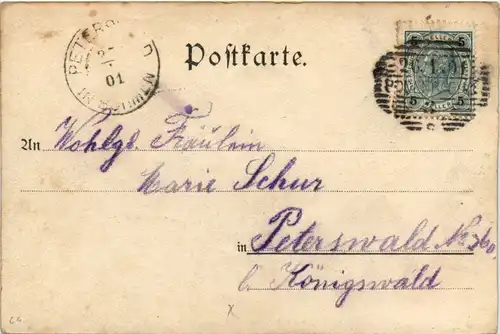 Postkarte.
01
5 5
5 5
An Wohlgb. Fräulein
Marie Schur
in Peterswald No 360,
b. Königswald